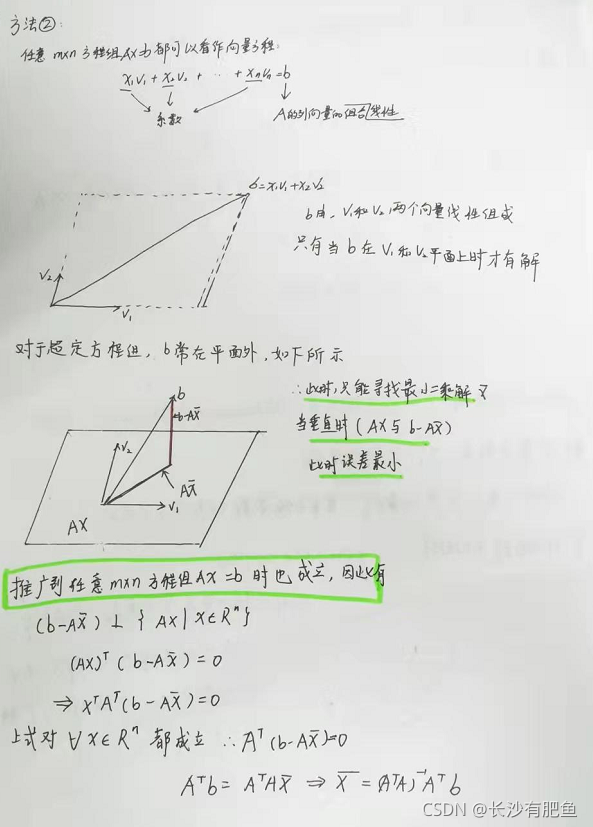 方法②:
任意 m×n 方程组 Ax=b 都可以看作向量方程:
x₁v₁ + x₂v₂ + ··· + xₙvₙ = b
系数
A的列向量的组合线性
b=x₁v₁+x₂v₂
b由, v₁和v₂两个向量线性组成
只有当 b 在 v₁和v₂平面上时才有解
v₂
v₁
对于超定方程组, b常在平面外, 如下所示
∴此时,只能寻找最小二乘解 x̄
当垂直时 (AX与 b-AX̄)
此时误差最小
b
b-AX̄
v₂
AX̄
v₁
AX
推广到任意 m×n 方程组 AX=b 时也成立, 因此有
(b-AX̄) ⊥ { AX | X∈Rⁿ}
(AX)ᵀ (b-AX̄) = 0
⇒ XᵀAᵀ(b-AX̄)=0
上式对 ∀x∈Rⁿ 都成立 ∴ Aᵀ(b-AX̄)=0
Aᵀb = AᵀAX̄ ⇒ X̄ = (AᵀA)⁻¹Aᵀb
CSDN @长沙有肥鱼